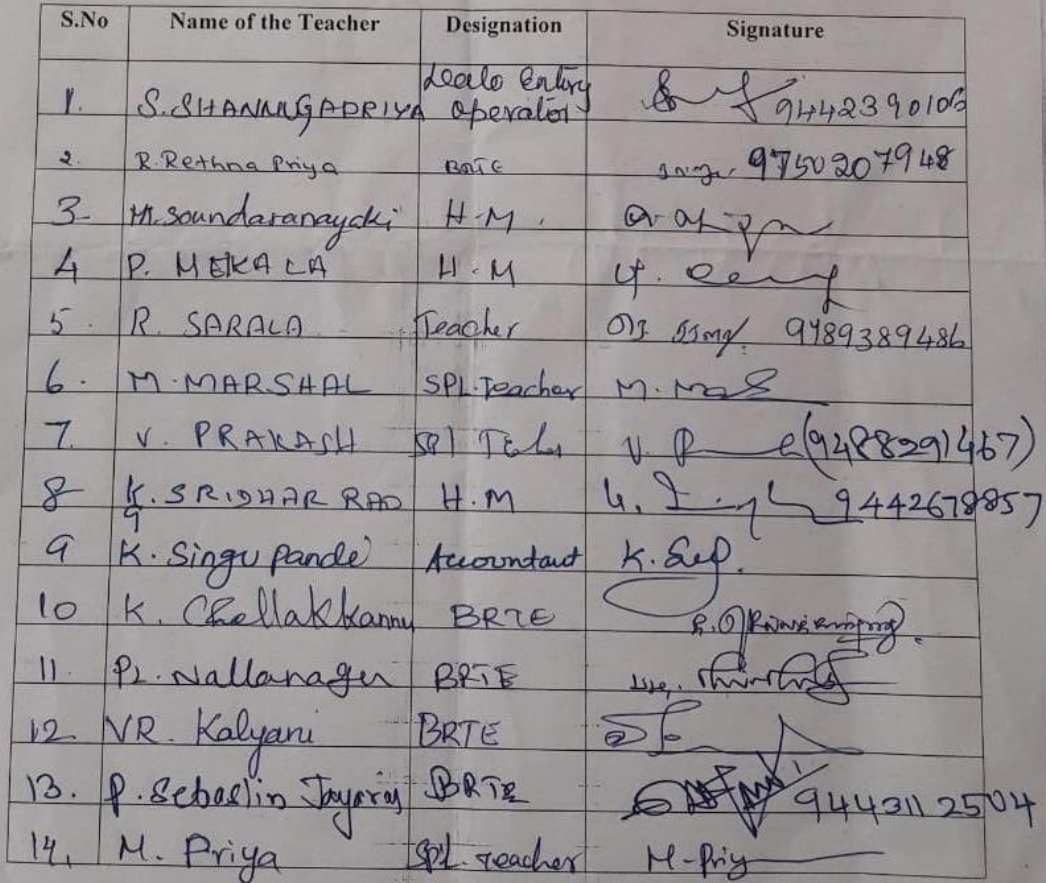 S.No Name of the Teacher Designation Signature
1. S. SHANMUGAPRIYA operator 9442390106
2. R. Rethna Priya BRTE 9750207948
3 M. Soundaranayaki H.M.
4 P. MEKALA H.M
5. R. SARALA Teacher 9789389486
6. M. MARSHAL SPL. Teacher M.
7. V. PRAKASH V. (9488291467)
8 K. SRIDHAR RAO H.M 9442678857
9 K. Singu pande Accountant K.
10 K. Chellakkannu BRTE
11. PL. Nallanager BRTE
12 VR. Kalyani BRTE
13. P. Sebastin Jayaraj BRTE 9443112504
14. M. Priya SPL. Teacher M-Priy